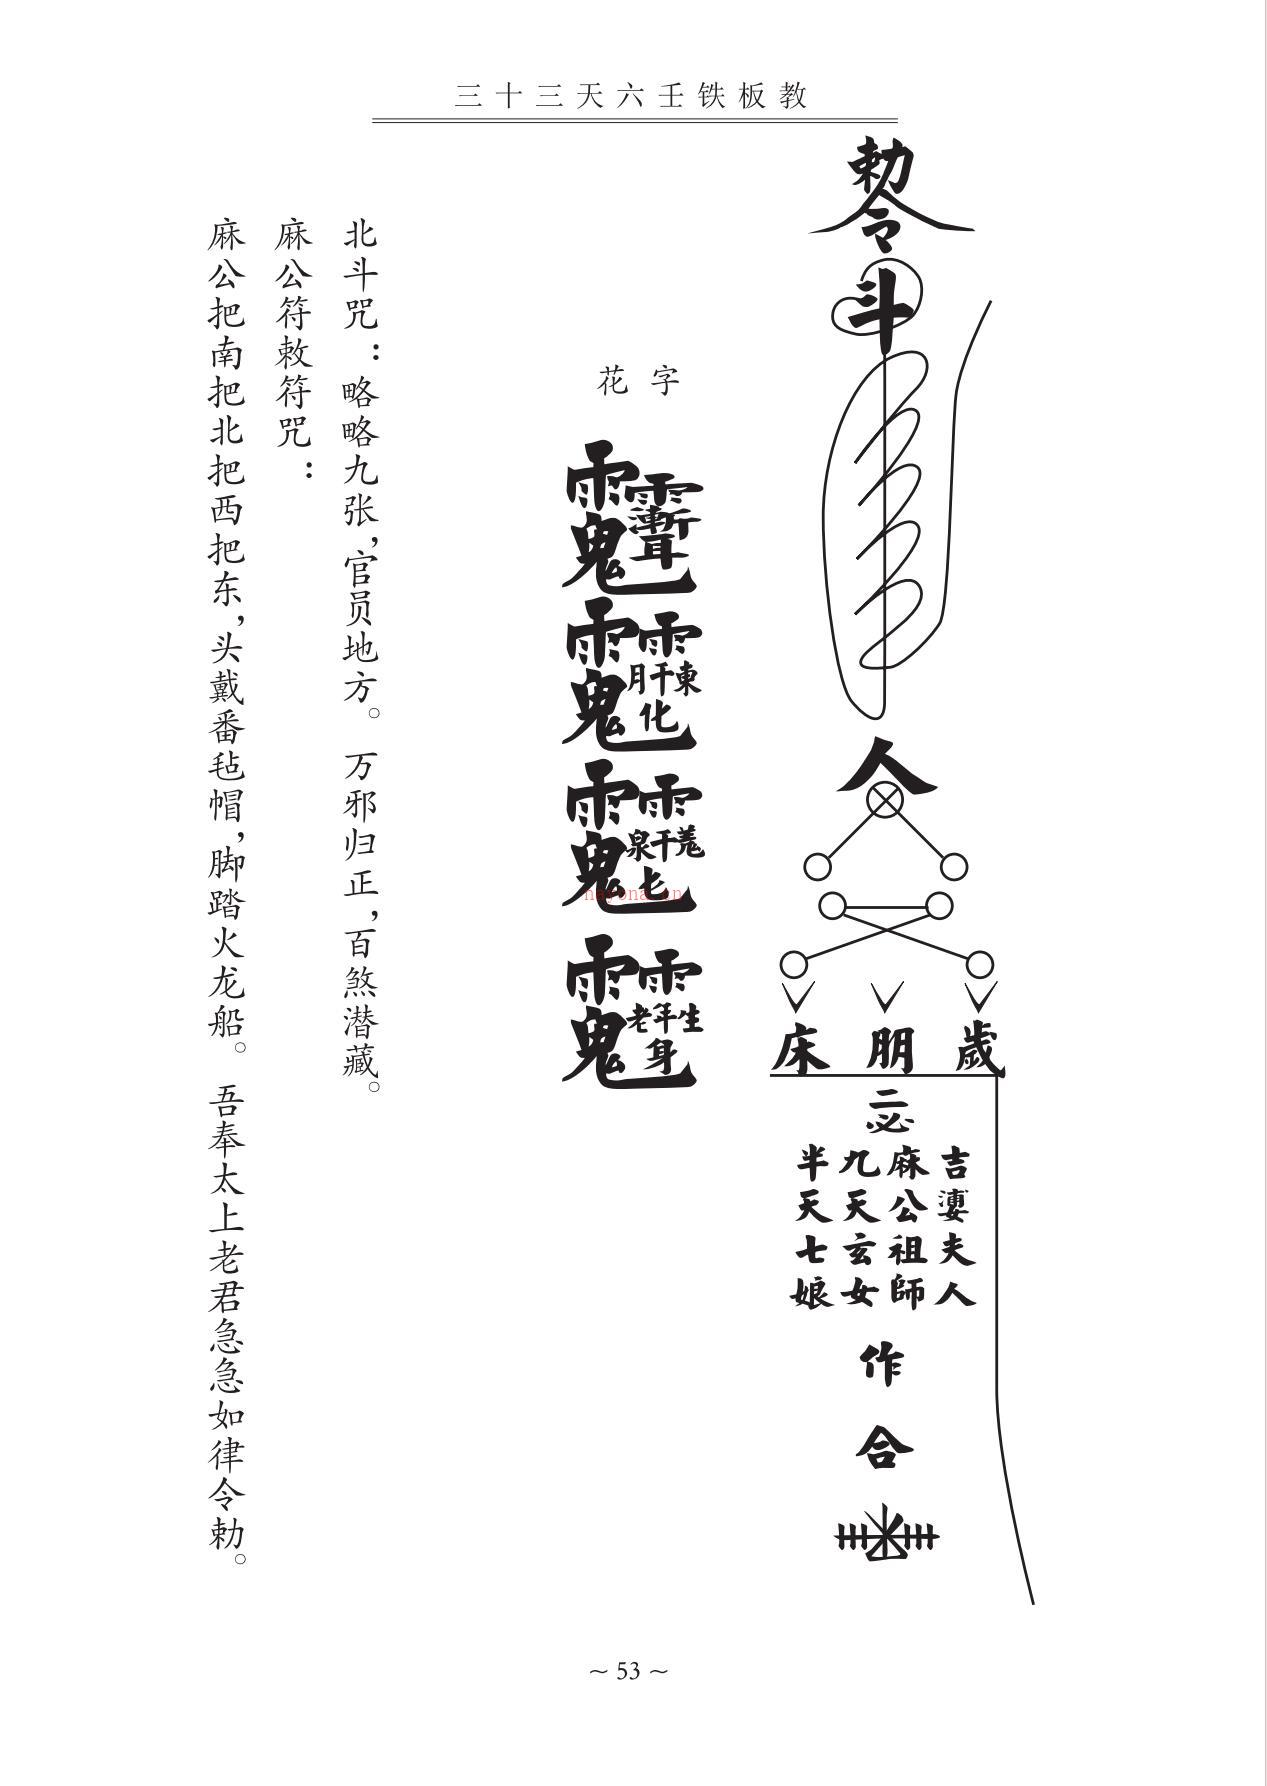 三十三天六壬铁板教
勅令
斗
人
床 朋 歲
吉 夫人
麻公祖師
九天玄女
半天七娘
作
合
花字
北斗咒：略略九张，官员地方。万邪归正，百煞潜藏。
麻公符敕符咒：
麻公把南把北把西把东，头戴番毡帽，脚踏火龙船。吾奉太上老君急急如律令勅。
nayona.cn
~ 53 ~